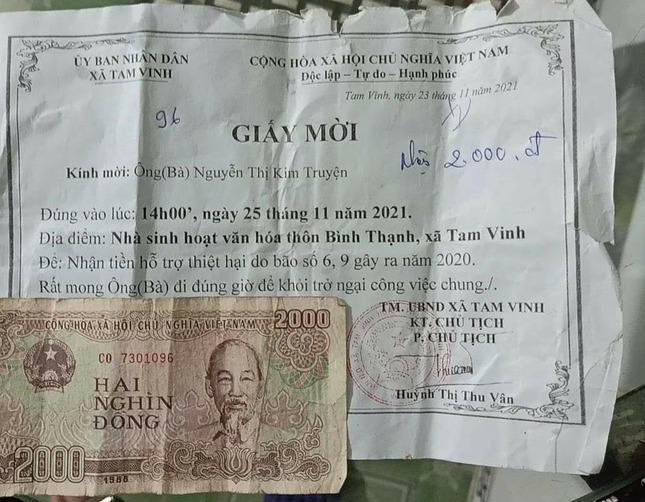 ỦY BAN NHÂN DÂN
XÃ TAM VINH
CỘNG HÒA XÃ HỘI CHỦ NGHĨA VIỆT NAM
Độc lập – Tự do – Hạnh phúc
Tam Vinh, ngày 23 tháng 11 năm 2021
96
GIẤY MỜI
2.000.đ
Kính mời: Ông(Bà) Nguyễn Thị Kim Truyện
Đúng vào lúc: 14h00', ngày 25 tháng 11 năm 2021.
Địa điểm: Nhà sinh hoạt văn hóa thôn Bình Thạnh, xã Tam Vinh
Đề: Nhận tiền hỗ trợ thiệt hại do bão số 6, 9 gây ra năm 2020.
Rất mong Ông(Bà) đi đúng giờ để khỏi trở ngại công việc chung./.
TM. UBND XÃ TAM VINH
KT. CHỦ TỊCH
P. CHỦ TỊCH
Huỳnh Thị Thu Vân
CỘNG HÒA XÃ HỘI CHỦ NGHĨA VIỆT NAM 2000
CO 7301096
HAI
NGHÌN
ĐỒNG
2000
1988